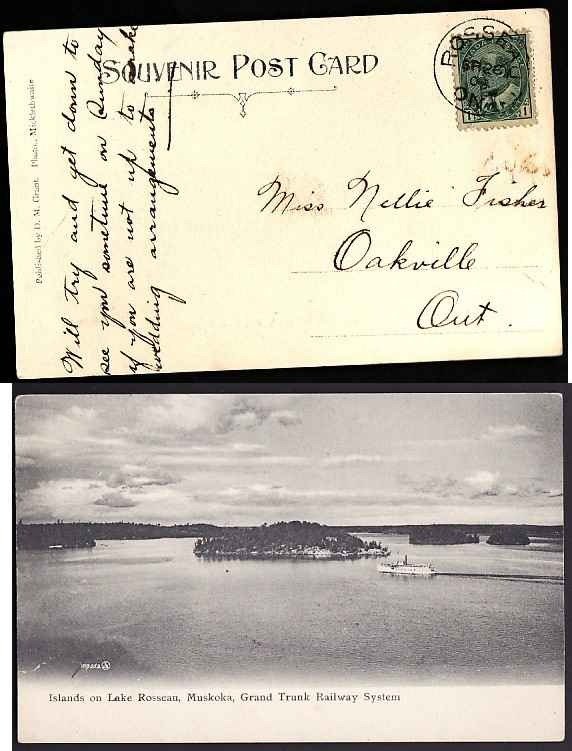 SOUVENIR POST CARD
ROSSEAU
ONT
Miss Nellie Fisher
Oakville
Ont.
Will try and get down to
see you sometime on Sunday
if you are not up to make
wedding arrangements
Published by D. M. Grant. Photo., Micklethwaite
Islands on Lake Rosseau, Muskoka, Grand Trunk Railway System